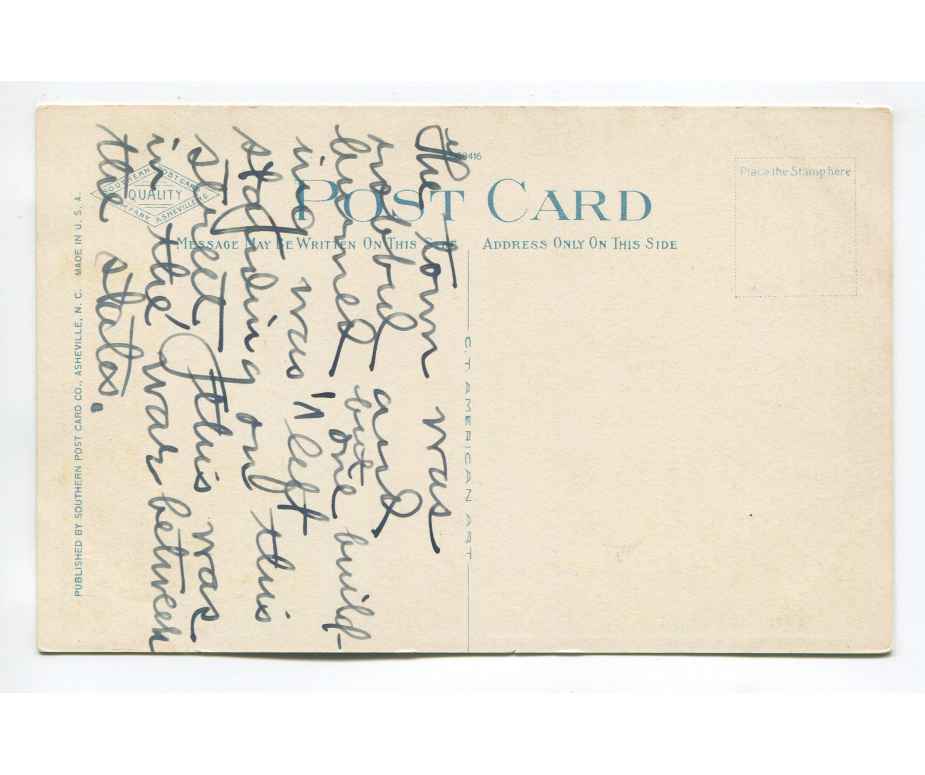 The town was
robbed and
burned but one build-
ing was'n left
standing on this
street, this was
in the war between
the states.
POST CARD
MESSAGE MAY BE WRITTEN ON THIS SIDE
ADDRESS ONLY ON THIS SIDE
Place the Stamp here
SOUTHERN POST CARD
QUALITY
COMPANY ASHEVILLE
C.T. AMERICAN ART
PUBLISHED BY SOUTHERN POST CARD CO., ASHEVILLE, N. C. MADE IN U. S. A.